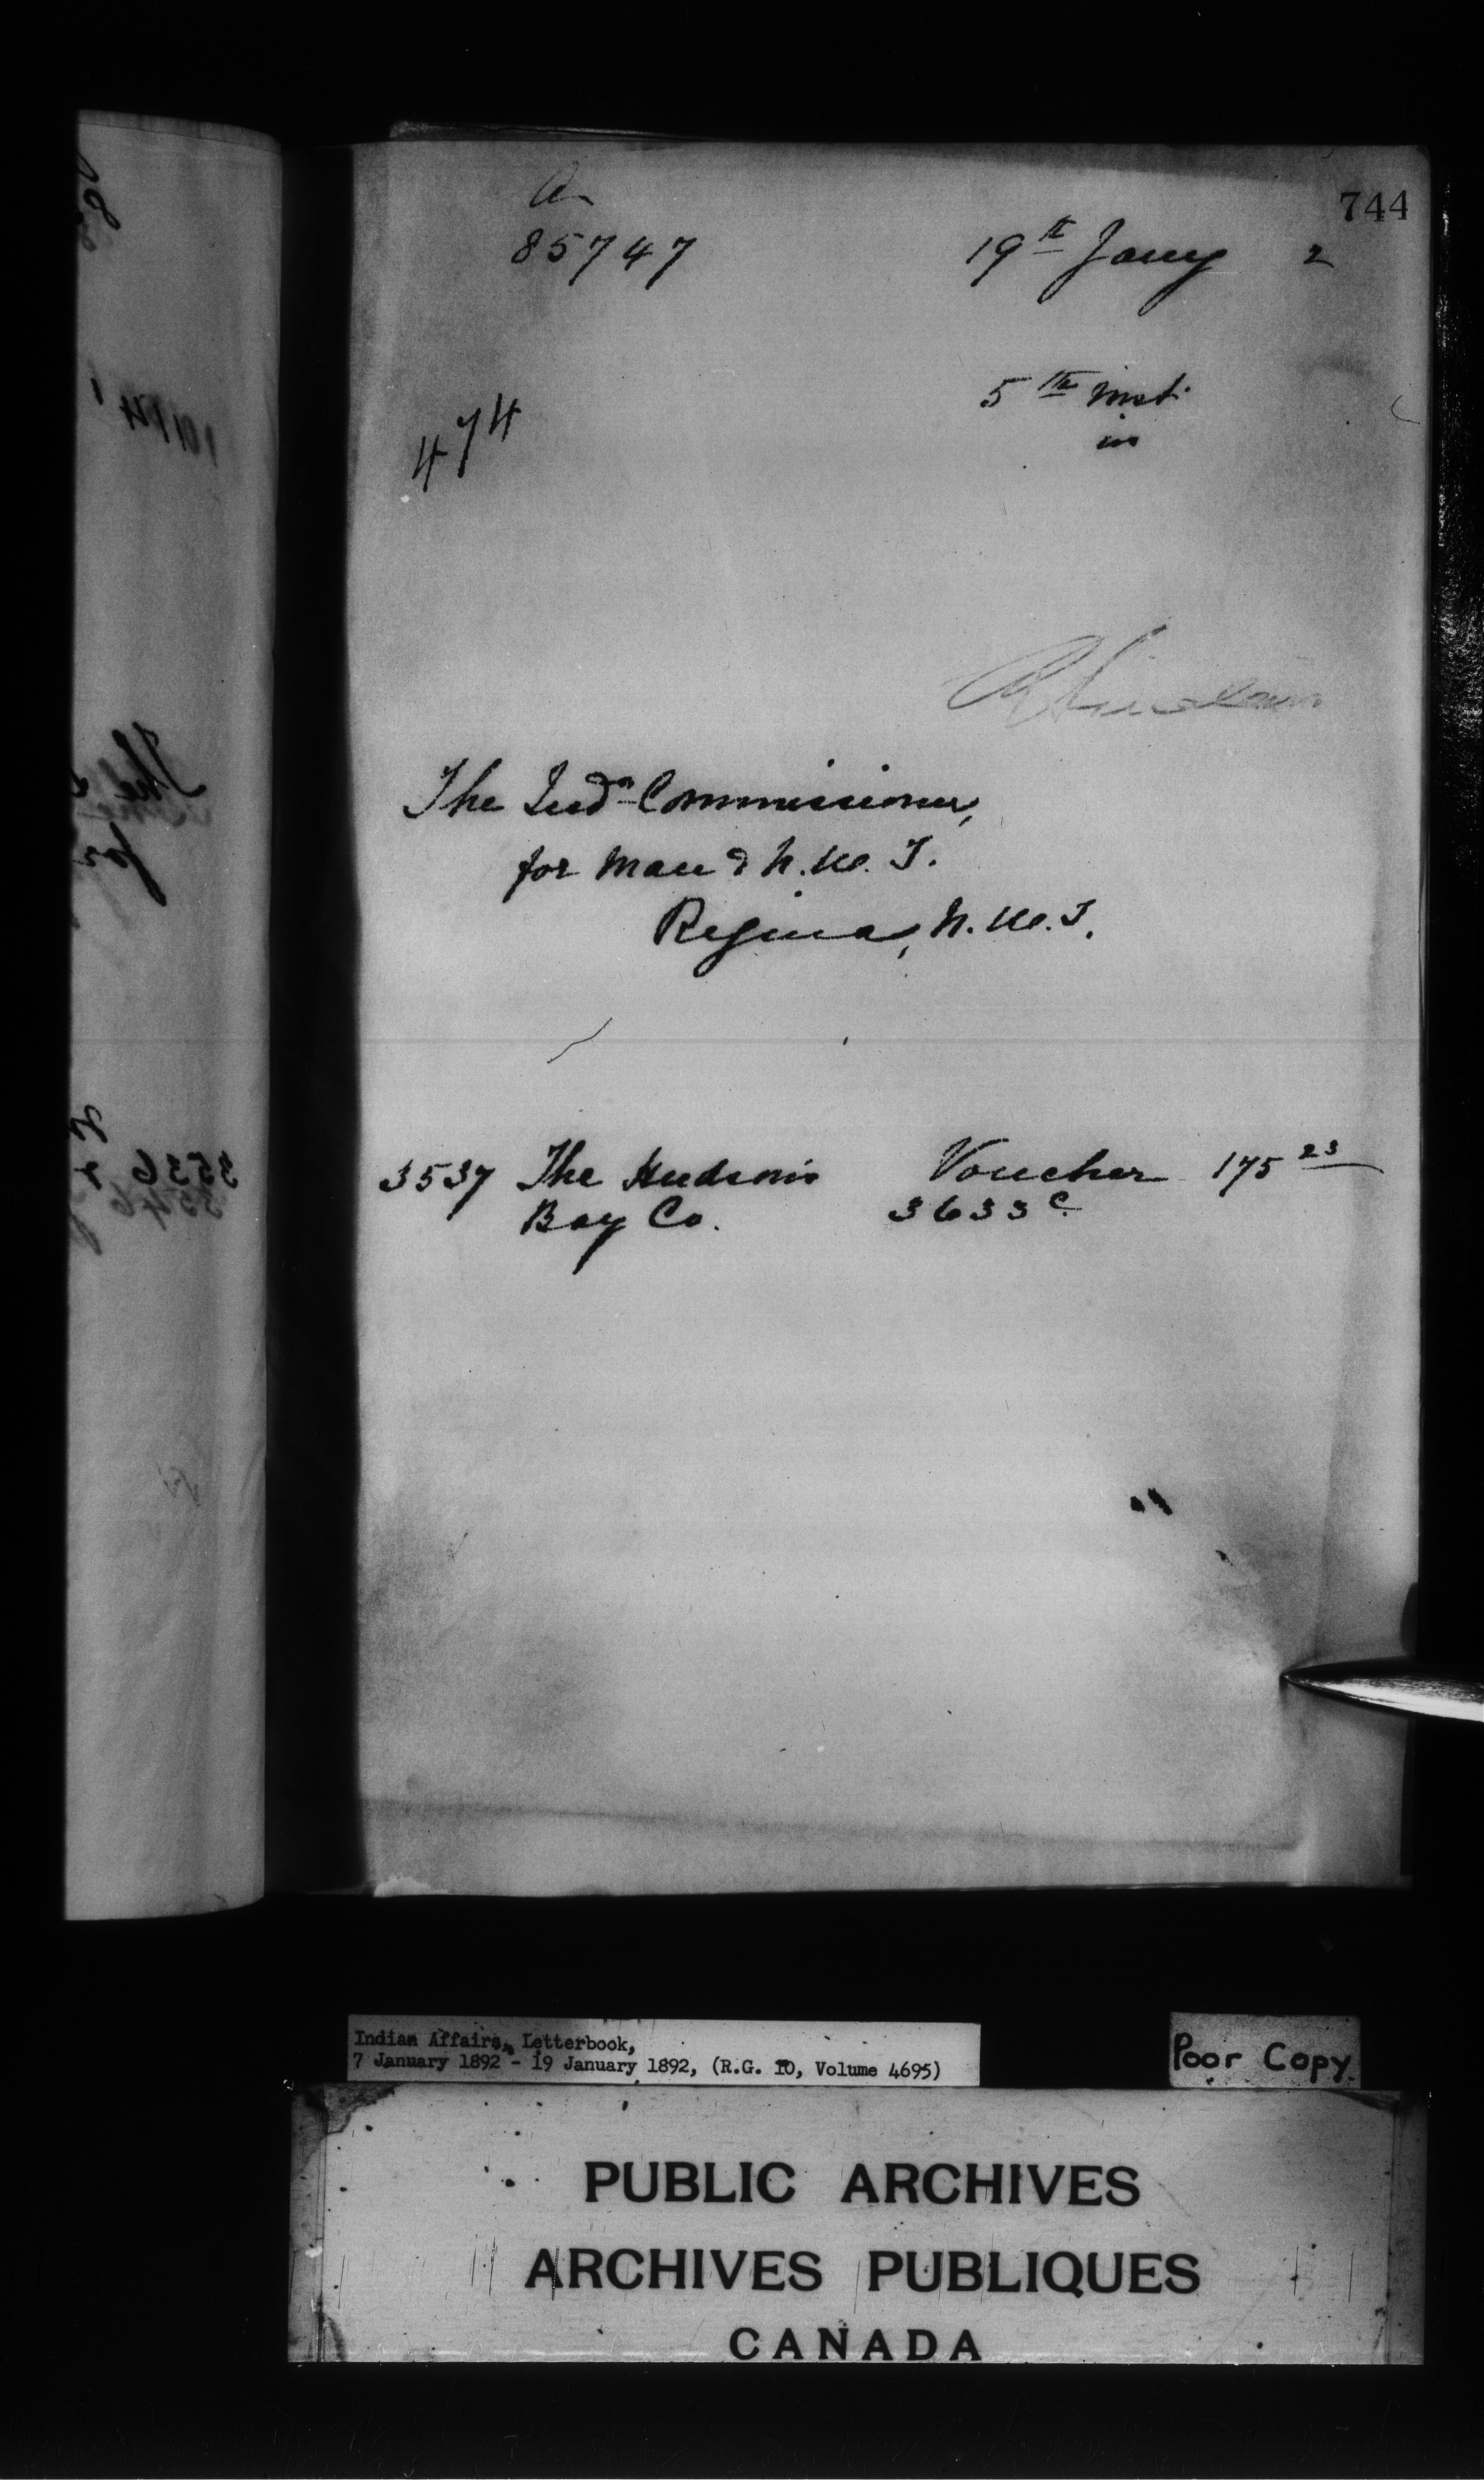 744
a
85747 19th Jany 2
5th inst
474
in
The Indn Commissioner,
for Man & N.W.T.
Regina, N.W.T.
3537 The Hudson's Voucher 175 23
Bay Co. 3633 c
Indian Affairs, Letterbook,
7 January 1892 - 19 January 1892, (R.G. 10, Volume 4695)
Poor Copy.
PUBLIC ARCHIVES
ARCHIVES PUBLIQUES
CANADA